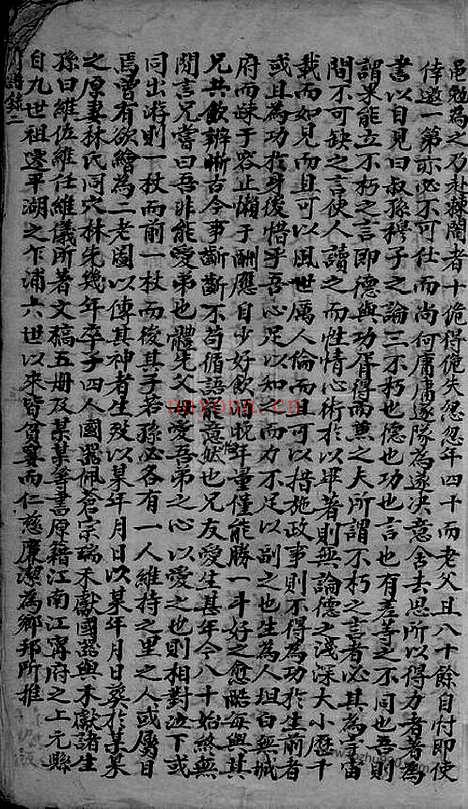 邑勉為之乃赴棘闈者十詭得詭失忽忽年四十而老父且八十餘自忖即使
倖邀一第亦必不可仕而尚何庸庸逐隊為遂决意舍去思所以得力者著為
書以自見曰叔孫穆子之論三不朽也德也功也言也有差等之不同也吾則
謂果能立不朽之言即德與功胥得而兼之夫所謂不朽之言者必其為宇宙
間不可缺之言使人讀之而性情心術於以畢著則無論儒之淺深大小歷千
載而如見而且可以風世厲人倫而且可以措施政事則不得為功於生前者
或且為功於身後惜乎吾心足以知之而力不足以副之也生為人坦白無城
府而疎于容止懶于酬應自少好飲晚年量僅能勝一斗好之愈酷每與其
兄共飲辨晰古今事齗齗不苟循語意然也兄友愛生甚年今八十始終無
間言兄嘗曰吾非能愛弟也體先父愛吾弟之心以愛之也則相對泣下或
同出游則一杖而前一杖而後其子若孫必各有一人維持之里之人或屬目
焉曾有欲繪為二老圖以傳其神者生歿以某年月日以某年月日葬於某某
之原妻林氏同穴林先幾年卒子四人國器佩蒼宗端禾獻國器與禾獻諸生
孫曰維伍維任維儀所著文稿五册及某某等書原籍江南江寧府之上元縣
自九世祖遷平湖之乍浦六世以來皆貧寠而仁慈廉潔為鄉邦所推
nayona.cn